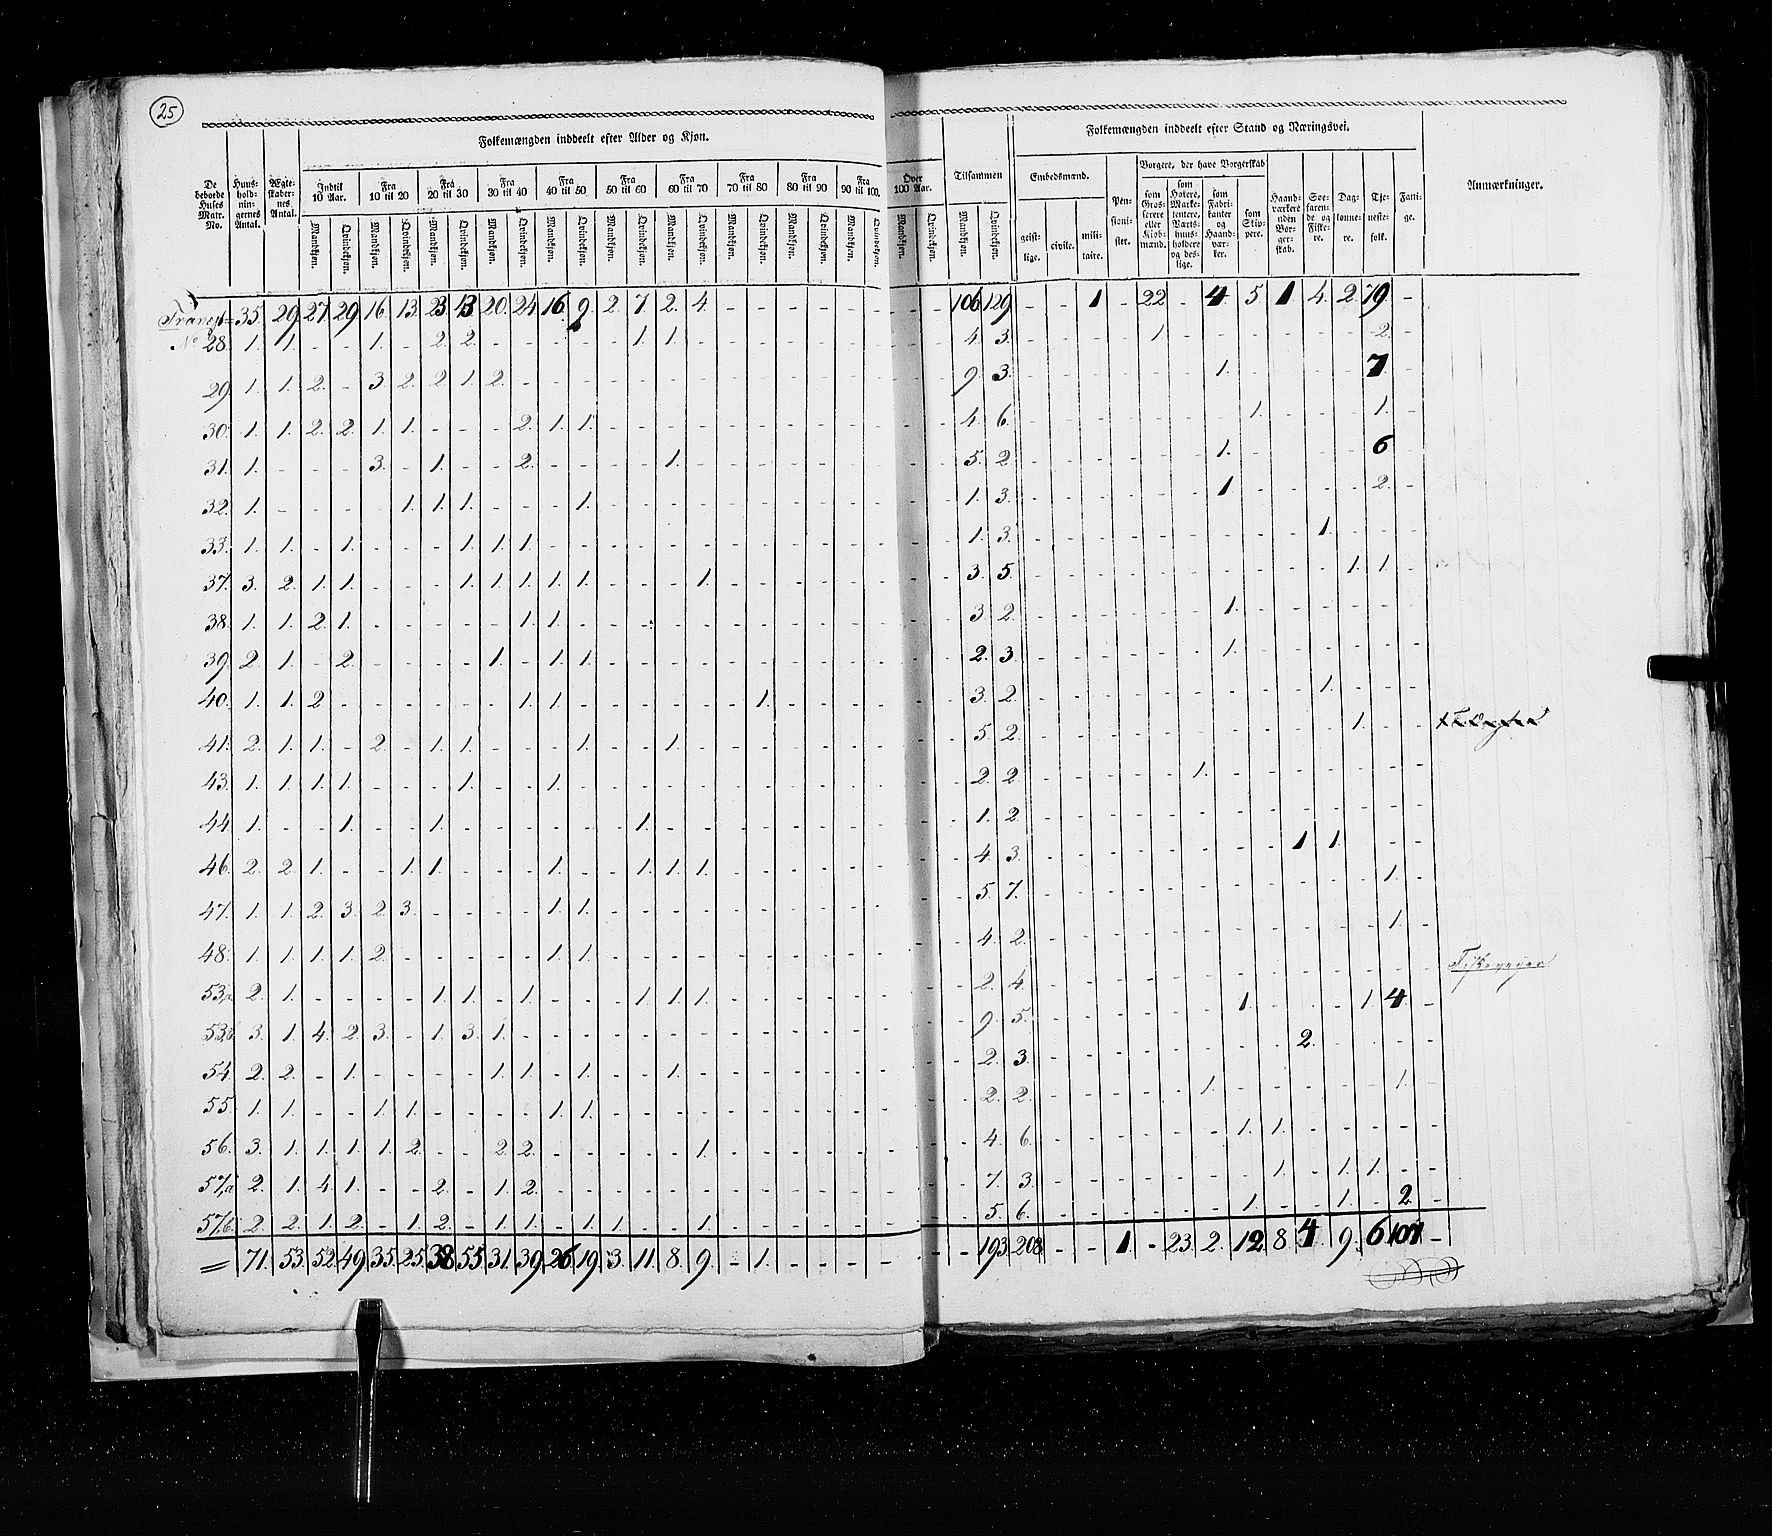 25
Folkemængden inddeelt efter Alder og Kjøn.
Folkemængden inddeelt efter Stand og Næringsvei.
De beboede Huses Matr. No.
Huus-hold-nin-gernes Antal.
Ægte-skaber-nes Antal.
Indtil 10 Aar.
Fra 10 til 20
Fra 20 til 30
Fra 30 til 40
Fra 40 til 50
Fra 50 til 60
Fra 60 til 70
Fra 70 til 80
Fra 80 til 90
Fra 90 til 100.
Over 100 Aar.
Tilsammen
Embedsmænd.
Pen-sioni-ster.
Borgere, der have Borgerskab
Haand-værkere uden Bor-ger-skab.
Søe-faren-de og Fiske-re.
Dag-lønne-re.
Tje-neste-folk.
Fatti-ge.
Anmærkninger.
Mandkjøn. Qvindekjøn. Mandkjøn. Qvindekjøn. Mandkjøn. Qvindekjøn. Mandkjøn. Qvindekjøn. Mandkjøn. Qvindekjøn. Mandkjøn. Qvindekjøn. Mandkjøn. Qvindekjøn. Mandkjøn. Qvindekjøn. Mandkjøn. Qvindekjøn. Mandkjøn. Qvindekjøn. Mandkjøn. Qvindekjøn. Mandkjøn. Qvindekjøn.
geist-lige. civile. mili-taire.
som Gros-serere eller Kiøb-mænd.
som Høkere, Marke-tentere, Værts-huus-holdere og des-lige.
som Fabri-kanter og Haand-vær-ker.
som Skip-pere.
Transp= 35 29 27 29 16 13 23 13 20 24 16 9 2 7 2 4 - - - - - - 106 129 - - 1 - 22 - 4 5 1 4 2 79 -
No 28. 1. 1. - - 1. - 2. 2. - - - - - 1. 1. - - - - - - - 4. 3. - - - - 1 - - - - - - 2. -
29. 1. 1. 2. - 3 2. 2. 1. 2. - - - - - - - - - - - - - 9 3. - - - - - - 1. - - - - 7. -
30. 1. 1. 2. 2. 1. 1. - - - 2. 1. 1. - - - - - - - - - - 4. 6. - - - - - - - 1. - - - 1. -
31. 1. - - - 3. - 1. - - 2. - - - - 1. - - - - - - - 5. 2. - - - - - - 1. - - - - 6 -
32. 1. - - - - 1. 1. 1. - - - 1. - - - - - - - - - - 1. 3. - - - - - - 1 - - - - 2. -
33. 1. 1. - 1. - - - 1. 1. 1. - - - - - - - - - - - - 1. 3. - - - - - - - - - 1. - - -
37. 3. 2. 1. 1. - - - 1. 1. 1. 1. 1. - - - 1. - - - - - - 3. 5. - - - - - - - - - - 1. 1. -
38. 1. 1. 2. 1. - - - - - 1. 1. - - - - - - - - - - - 3. 2. - - - - - - 1. - - - - - -
39. 2. 1. - 2. - - - - 1. - 1. 1. - - - - - - - - - - 2. 3. - - - - - - 1. - - - - - -
40. 1. 1. 2 - - - - - - 1. 1. - - - - - - 1. - - - - 3. 2. - - - - - - - - - 1. - - -
41. 2. 1. 1. - 2. - 1. 1. - - - 1. - - 1. - - - - - - - 5. 2. - - - - - - - - - - 1. - -
43. 1. 1. 1. 1. - - - 1. - - 1. - - - - - - - - - - - 2. 2. - - - - - 1. - - - - - - -
44. 1. - - 1. - - 1. - - - - - - 1. - - - - - - - - 1. 2. - - - - - - - - - - - - -
46. 2. 2. 1. - - 1. 1. - - - 1. - - 1. 1. 1. - - - - - - 4. 3. - - - - - - - - 1 1. - - -
47. 1. 1. 2. 3. 2. 3. - - - - 1. 1. - - - - - - - - - - 5. 7. - - - - - - - - - - - 1. -
48. 1. 1. 1. 1. 2. - - - - - 1. 1. - - - - - - - - - - 4. 2. - - - - - - - - - - - 1. -
53,a 2. 1. - - - - 1. 1. - 1. - - - 1. 1. 1. - - - - - - 2. 4. - - - - - - - - - - - - -
53,b 3. 1. 4. 2. 3. - 1. 3. 1. - - - - - - - - - - - - - 9. 5. - - - - - - 1. - - - 1. 4 -
54. 2. 2. - 1. - - - - 1. 1. - 1. - - 1. - - - - - - - 2. 3. - - - - - - - - 2. - - - -
55. 1. 1. - - 1. 1. - - - - 1. 1. - - - - - - - - - - 2. 2. - - - - - 1. - - - - - 1. -
56. 3. 1. 1. 1. 1. 2. - - 2. 2. - - - - - 1. - - - - - - 4. 6. - - - - - - 1. 1. - - - - -
57,a 2. 1. 4. 1. - - 2. - 1. 2. - - - - - - - - - - - - 7. 3. - - - - - - - 1. - 1. 1. - -
57,b 2. 2. 1. 2. - 1. 2. - 1. 1. - 1. 1. - - 1. - - - - - - 5. 6. - - - - - - 1. - - 1. - 2. -
= 71. 53. 52. 49. 35. 25. 38 55 31. 39. 26. 19. 3. 11. 8. 9. - 1. - - - - 193. 208. - - 1. - 23. 2. 12. 8. 4. 9. 6 107 -